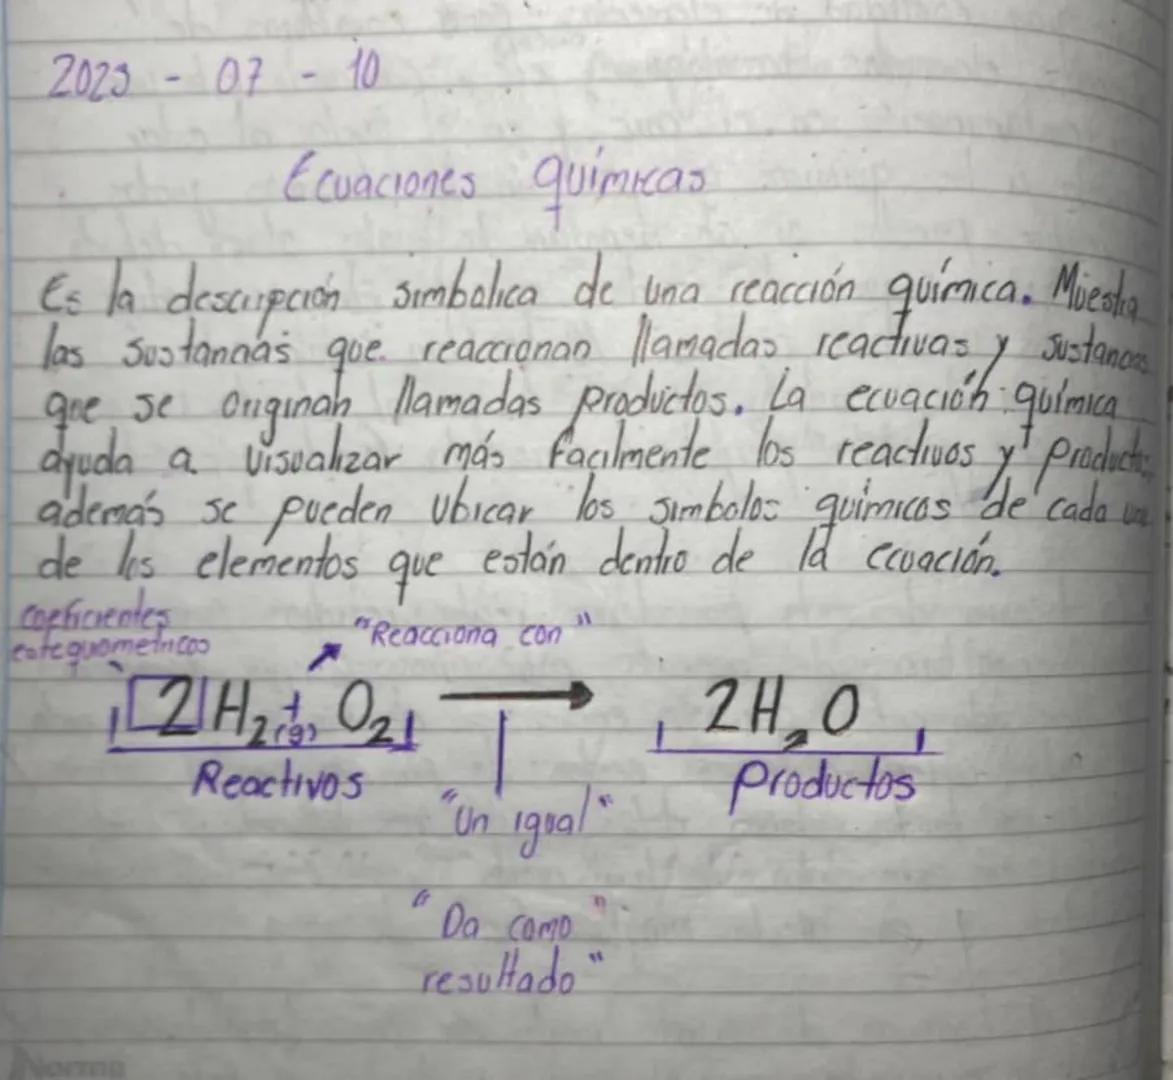 2023 - 07 - 10
Ecuaciones químicas
Es la descripción simbolica de una reacción química. Muestra
las sustancias que reaccionan llamadas reactivas y sustancias
que se originan llamadas productos. La ecuación química
ayuda a visualizar más facilmente los reactivos y productos
además se pueden ubicar los simbolos químicos de cada uno
de los elementos que están dentro de la ecuación.
coeficientes
estequiometricos
"Reacciona con"
2H₂ + (g) O₂ → 2H₂O
Reactivos
Productos
"Un igual"
"Da como"
resultado"
Norma